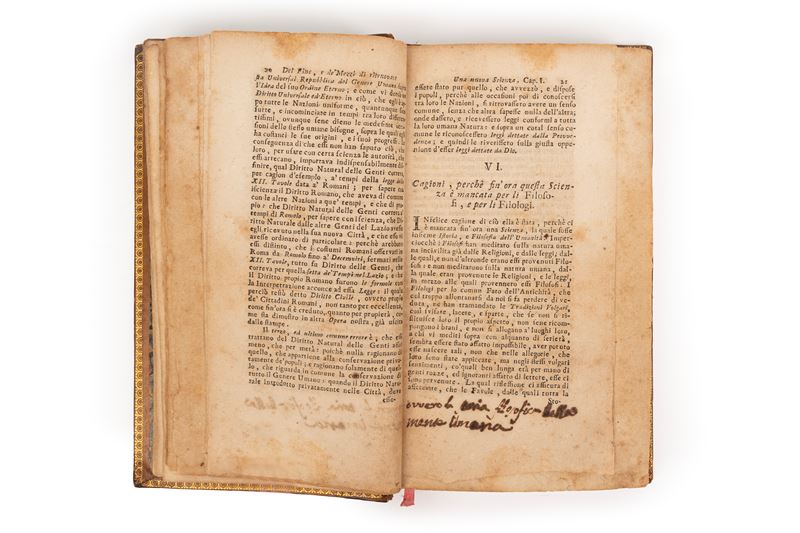 20 Del Fine, e de' Mezzi di ritrovare
sta Universal Repubblica del Genere Umano
l'Idea del suo Ordine Eterno; e come vi
Diritto Universale ed Eterno in ciò, che egli è
po tutte le Nazioni uniforme, quantunque
surte, e incominciate in tempi tra loro
tissimi, ovunque sene dieno le medesime
sioni dello stesso umane bisogne, sopra le quali egli
ha costanti le sue origini, e i suoi progressi.
conseguenza di che essi non han saputo ciò, che
loro, per usare con certa scienza le autorità, che
essi arrecano, importava indispensabilmente di-
finire, qual Diritto Naturale delle Genti corresse,
per cagion d'esemplo, a' tempi della legge delle
XII. Tavole data a' Romani; per sapere con
iscienza il Diritto Romano, che aveva di comune
con le altre Nazioni a que' tempi, e che di pro-
pio: che Diritto Naturale delle Genti correva a'
tempi di Romolo, per sapere con iscienza, che Di-
ritto Naturale dalle altre Genti del Lazio avesse
egli ricevuto nella sua nuova Città, e che esso vi
avesse ordinato di particolare: perchè arebbono
essi distinto, che i costumi Romani osservati in
Roma da Romolo fino a' Decemviri, fermati nelle
XII. Tavole, tutto fu Diritto delle Genti, che
correva per quella setta de' Tempi nel Lazio; e che
il Diritto propio Romano furono le formole con
la Interpretazione acconce ad essa Legge: il quale
perciò restò detto Diritto Civile, ovvero propio
de' Cittadini Romani, non tanto per eccellenza,
come fin'ora si è creduto, quanto per propietà, co-
me sia dimostro in altra Opera nostra, già uscita
dalle stampe.
Il terzo, ed ultimo comune errore è; che essi
trattano del Diritto Naturale delle Genti assai
meno, che per metà: poichè nulla ragionano di
quello, che appartiene alla conservazione priva-
tamente de' popoli; e ragionano solamente di quel-
lo, che riguarda in comune la conservazione di
tutto il Genere Umano: quando il Diritto Natu-
rale introdotto privatamente nelle Città, deve
esse-
Una nuova Scienza. Cap. I. 21
essere stato pur quello, che avvezzò, e dispose
i popoli, perchè alle occasioni poi di conoscersi
tra loro le Nazioni, si ritrovassero avere un senso
comune, senza che altra sapesse nulla dell'altra;
onde dassero, e ricevessero leggi conformi a tutta
la loro umana Natura: e sopra un cotal senso co-
mune le riconoscessero leggi dettate dalla Provve-
denza; e quindi le riverissero sulla giusta oppe-
nione d'esser leggi dettate da Dio.
VI.
Cagioni, perchè fin'ora questa Scien-
za è mancata per li Filoso-
fi, e per li Filologi.
INfelice cagione di ciò ella è stata, perchè ci
è mancata fin'ora una Scienza, la quale fusse
insieme Istoria, e Filosofia dell'Umanità. Imper-
ciocchè i Filosofi han meditato sulla natura uma-
na incivilita già dalle Religioni, e dalle leggi; dal-
le quali, e non d'altronde erano essi provenuti Filo-
sofi: e non meditarono sulla natura umana, dal-
la quale eran provenute le Religioni, e le leggi,
in mezzo alle quali provennero essi Filosofi. I
Filologi per lo comun Fato dell'Antichità, che
col troppo allontanarsi da noi si fa perdere di ve-
duta, ne han tramandato le Tradizioni Volgari,
così svisate, lacere, e sparte, che se non si re-
stituisce loro il propio aspetto, non sene ricom-
pongono i brani, e non si allogano a' luoghi loro,
a chi vi mediti sopra con alquanto di serietà,
sembra essere stato affatto impossibile, aver potuto
esse nascere tali, non che nelle allegorie, che
loro sono state appiccate, ma negli stessi volgari
sentimenti, co' quali ben lunga età per mano di
genti rozze, ed ignoranti affatto di lettere, esse ci
sono pervenute. La qual riflessione ci assicura di
asseverare, che le Favole, dalle quali tutta la
Sto-
ovvero la una filosofica della
mente Umana